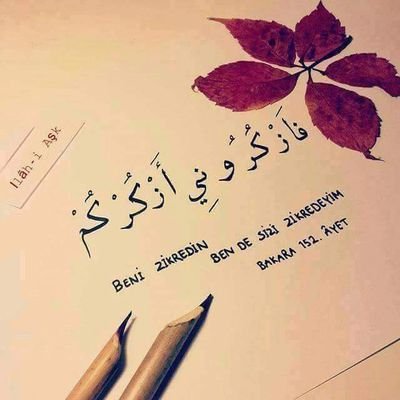 فَاذْكُرُونِي أَذْكُرْكُمْ
BENİ ZİKREDİN BEN DE SİZİ ZİKREDEYİM
BAKARA 152. ÂYET
İlâh-i Aşk